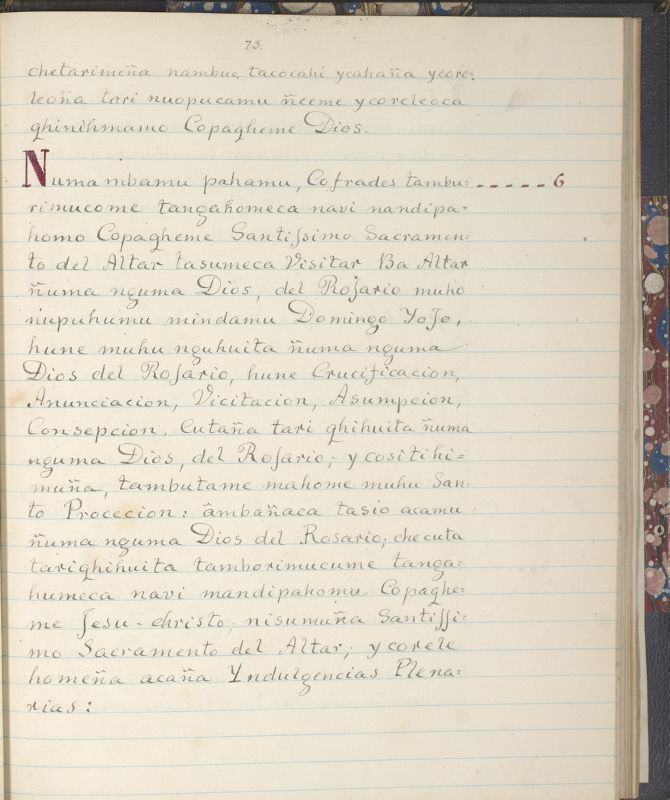 73.
chetarimeña nambue, tacocahi ycahaña ycore:
leoña tari nuopucamu ñceme ycoreleoca
qhinihmamo Copagheme Dios.
Numa mbamu pahamu, Cofrades tambu: - - - - - 6
rimucome tangahomeca navi nandipa-
homo Copagheme Santifsimo Sacramen:
to del Altar tasumeca Visitar Ba Altar
ñuma nguma Dios, del Rosario muho
nupuhumu mindamu Domingo YoJo,
hune muhu nguhuita ñuma nguma
Dios del Rosario, hune Crucificacion,
Anunciacion, Vicitacion, Asumpcion,
Consepcion. Cutaña tari qhihuita ñuma
nguma Dios, del Rosario,; y cositihi=
muña, tambutame mahome muhu San:
to Procecion: âmbañaca tasio acamu
ñuma nguma Dios del Rosario; checuta
tariqhihuita tamborimucume tanga:
humeca navi mandipahomu Copaghe:
me Jesu-christo; nisumuña Santifsi:
mo Sacramento del Altar,; ycorele
homeña acaña Yndulgencias Plena:
rias: